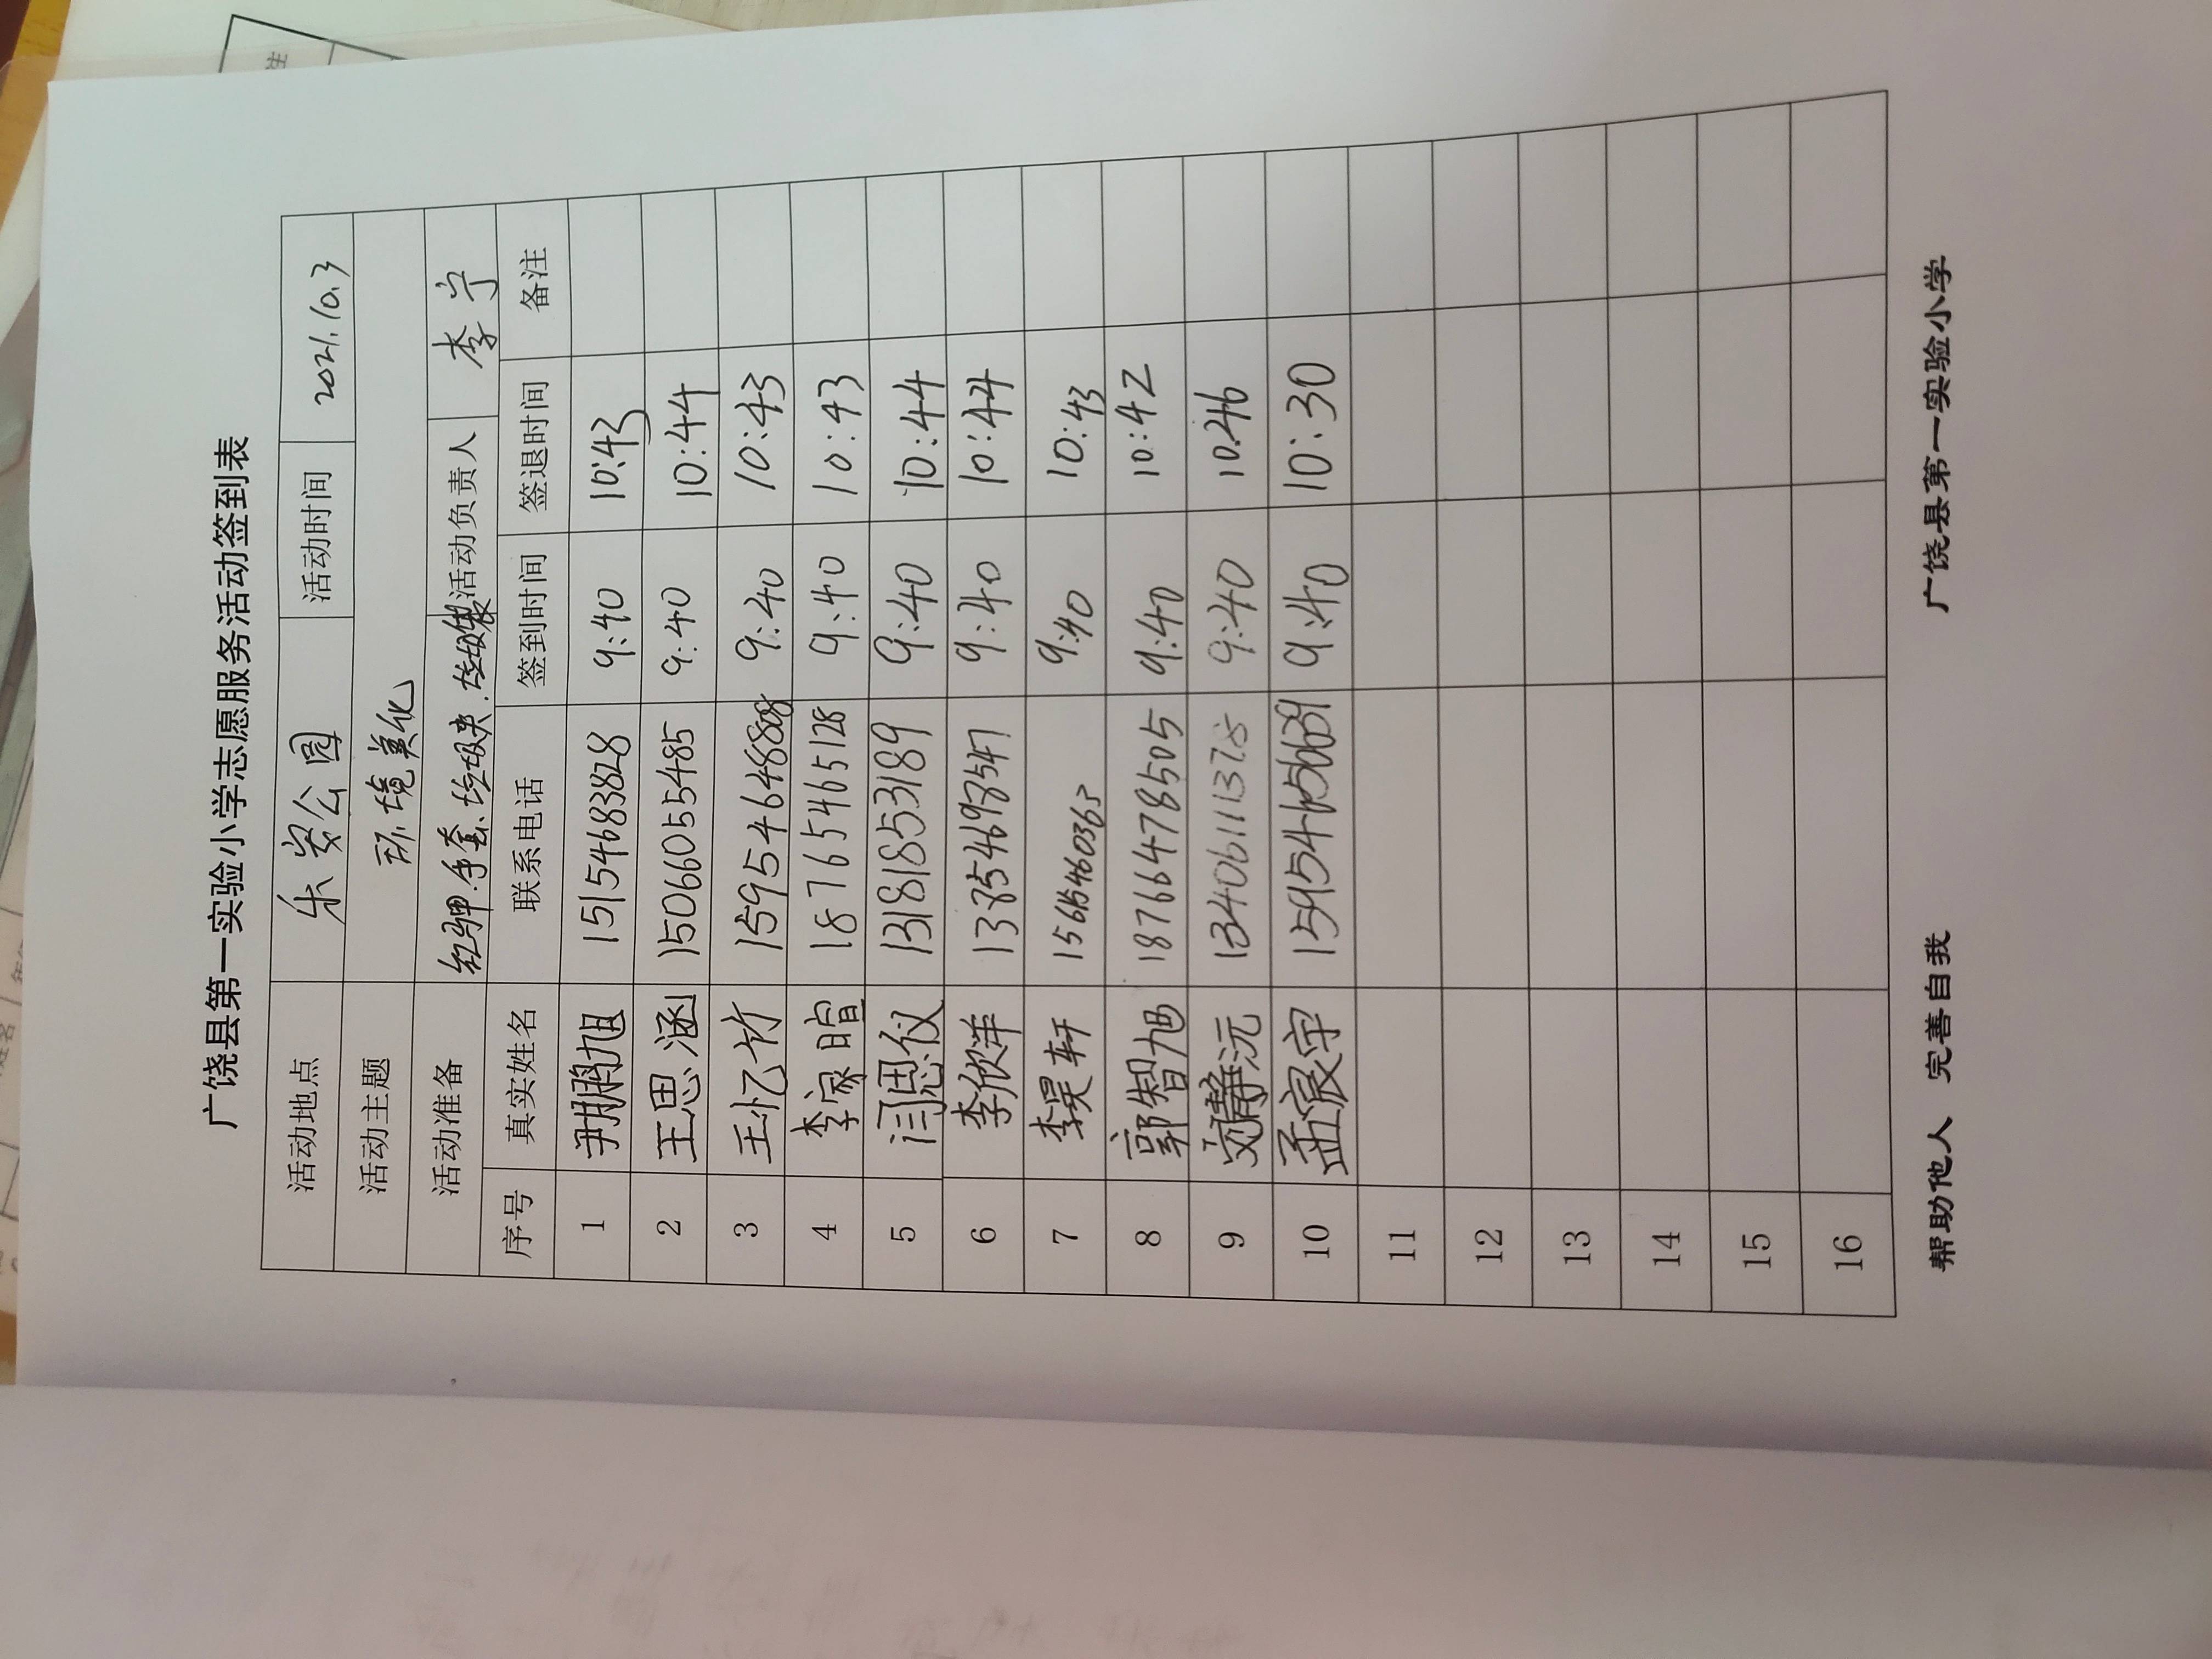 广饶县第一实验小学志愿服务活动签到表
活动地点 乐安公园 活动时间 2021.10.3
活动主题 环境美化
活动准备 红马甲.手套.垃圾夹.垃圾袋 活动负责人 李宁
序号 真实姓名 联系电话 签到时间 签退时间 备注
1 尹鹏旭 15154683828 9:40 10:43
2 王思涵 15066055485 9:40 10:44
3 王忆竹 15954648808 9:40 10:43
4 李家暄 18765465128 9:40 10:43
5 闫恩仪 13181853189 9:40 10:44
6 李欣洋 9:40 10:44
7 李昊轩 15615460363 9:40 10:43
8 郭智旭 18766478505 9:40 10:42
9 刘静沅 9:40 10:46
10 孟宸宇 9:40 10:30
11
12
13
14
15
16
帮助他人 完善自我 广饶县第一实验小学